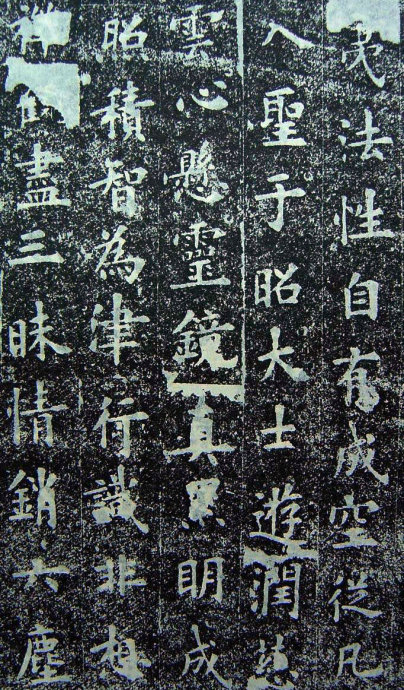 法性自有成空從凡
入聖于昭大士遊潤慈
雲心懸靈鏡真累明成
昭積智為津行識非想
禪盡三昧情銷六塵